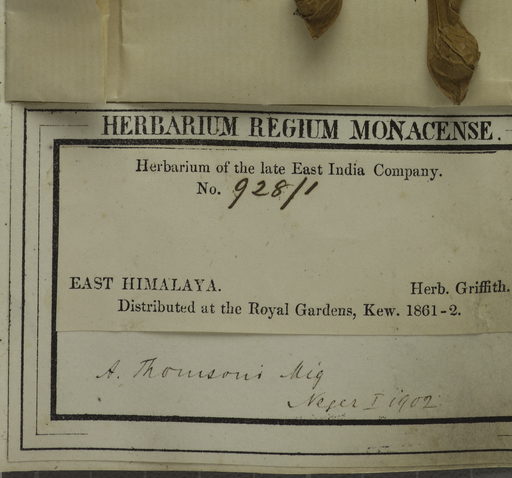 HERBARIUM REGIUM MONACENSE.
Herbarium of the late East India Company.
No. 928/1
EAST HIMALAYA. Herb. Griffith.
Distributed at the Royal Gardens, Kew. 1861-2.
A. Thomsoni Miq
Neger I 1902